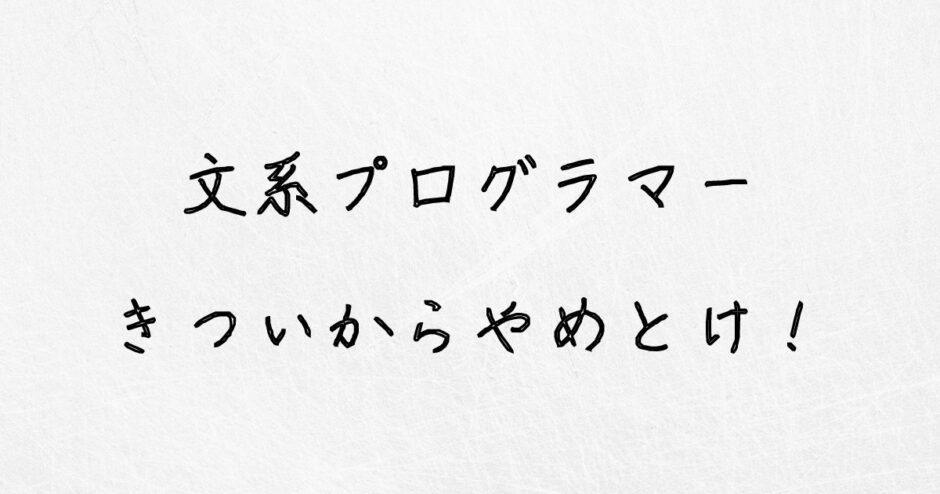 文系プログラマー
きついからやめとけ！